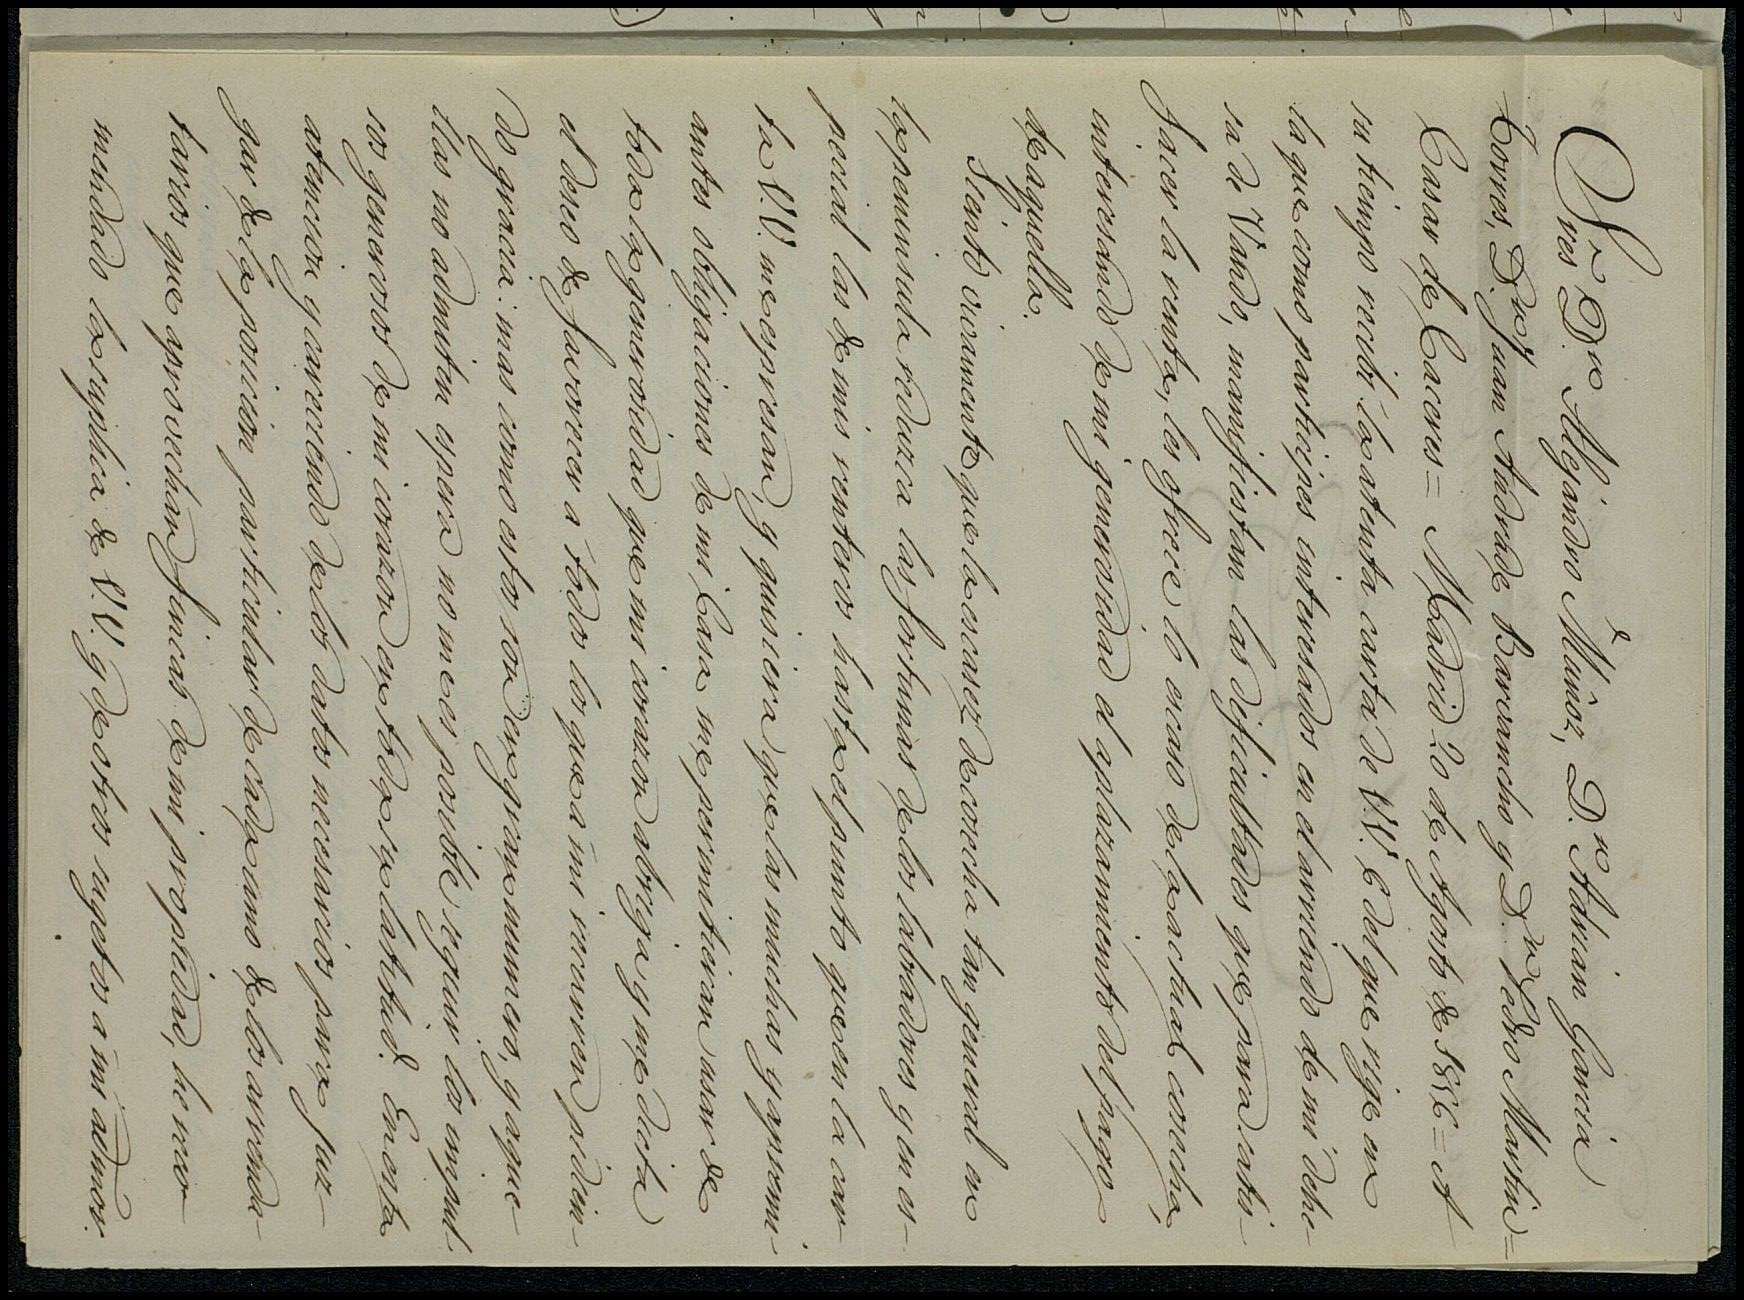 Sres Dn. Alejandro Muñoz, Dn. Adrian Garcia
Torres, Dn. Juan Andrade Barrancho y Dn. Pedro Martin=
Casar de Caceres= Madrid 20 de Agosto de 1886= A
su tiempo recibí la atenta carta de V.V. 6 del que rige en
la que como participes interesados en el arriendo de mi dehe-
sa de Vando, manifiestan las dificultades que para satis-
facer la renta, les ofrece lo escaso de la actual cosecha,
interesando de mi generosidad el aplazamiento del pago
de aquella.
Siento vivamente que la escasez de cosecha tan general en
la peninsula reduzca las fortunas de los labradores y en es-
pecial las de mis renteros hasta el punto que en la car-
ta V.V. me espresan, y quisiera que las muchas y apremi-
antes obligaciones de mi Casa me permitieran usar de
toda la generosidad que mi corazon abriga y me dicta
el deseo de favorecer a todos los que a mi recurren pidien-
do gracia: mas como estos son en gran numero, y aque-
llas no admiten espera no me es posible seguir los impul-
sos generosos de mi corazon en toda su latitud. En esta
atencion y careciendo de los datos necesarios para juz-
gar de la posicion particular de cada uno de los arrenda-
tarios que aprovechan fincas de mi propiedad, he reco-
mendado la suplica de V.V. y de otros sugetos a mi admor.